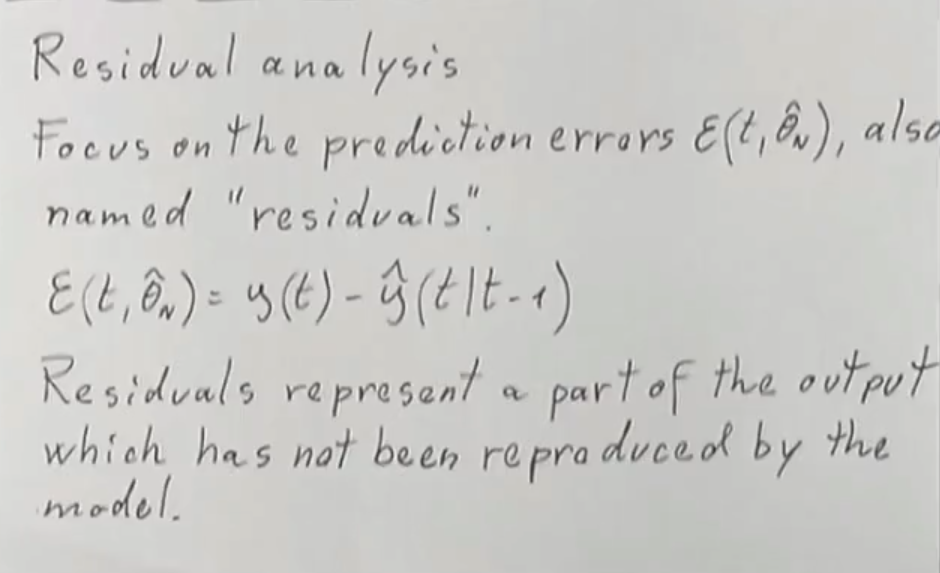 Residual analysis
Focus on the prediction errors ε(t, θ̂_N), also
named "residuals".
ε(t, θ̂_N) = y(t) - ŷ(t|t-1)
Residuals represent a part of the output
which has not been reproduced by the
model.